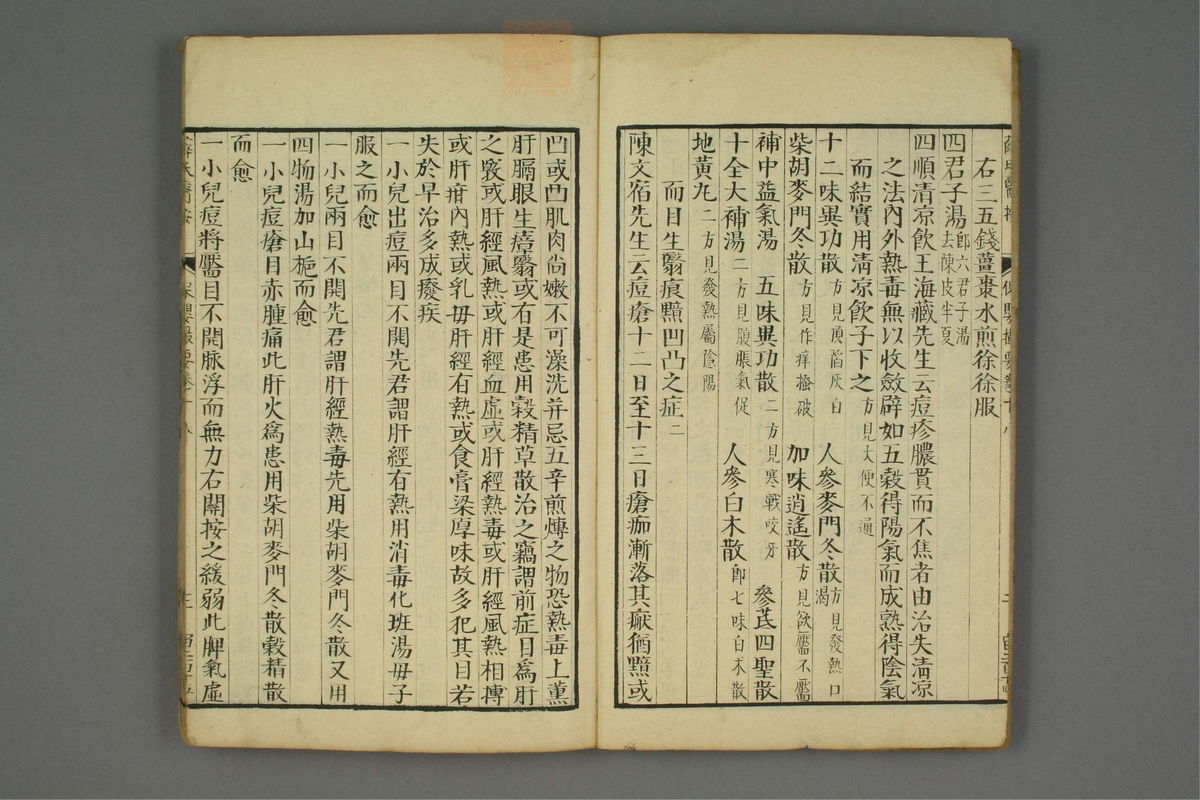 右三五錢薑棗水煎徐徐服
四君子湯即六君子湯去陳皮半夏
四順清凉飲王海藏先生云痘疹膿貫而不焦者由治失淸凉
之法內外熱毒無以收斂辟如五穀得陽氣而成熟得陰氣
而結實用淸凉飲子下之方見大便不通
十二味異功散方見頂陷灰白 人參麥門冬散方見發熱口渴
柴胡麥門冬散方見作痒搔破 加味逍遙散方見欲靨不靨
補中益氣湯 五味異功散二方見寒戰咬牙 參芪四聖散
十全大補湯二方見腹脹氣促 人參白朮散即七味白朮散
地黃丸二方見發熱屬陰陽
而目生翳痕黯凹凸之症二
陳文宿先生云痘瘡十二日至十三日瘡痂漸落其瘢猶黯或
凹或凸肌肉尚嫩不可澡洗并忌五辛煎煿之物恐熱毒上薰
肝膈眼生瘴翳或有是患用穀精草散治之竊謂前症目爲肝
之竅或肝經風熱或肝經血虛或肝經熱毒或肝經風熱相摶
或肝疳內熱或乳母肝經有熱或食膏粱厚味故多犯其目若
失於早治多成癈疾
一小兒出痘兩目不開先君謂肝經有熱用消毒化班湯母子
服之而愈
一小兒兩目不開先君謂肝經熱毒先用柴胡麥門冬散又用
四物湯加山梔而愈
一小兒痘瘡目赤腫痛此肝火爲患用柴胡麥門冬散穀精散
而愈
一小兒痘將靨目不開脉浮而無力右關按之緩弱此脾氣虛
薛氏醫按
保嬰撮要卷十八